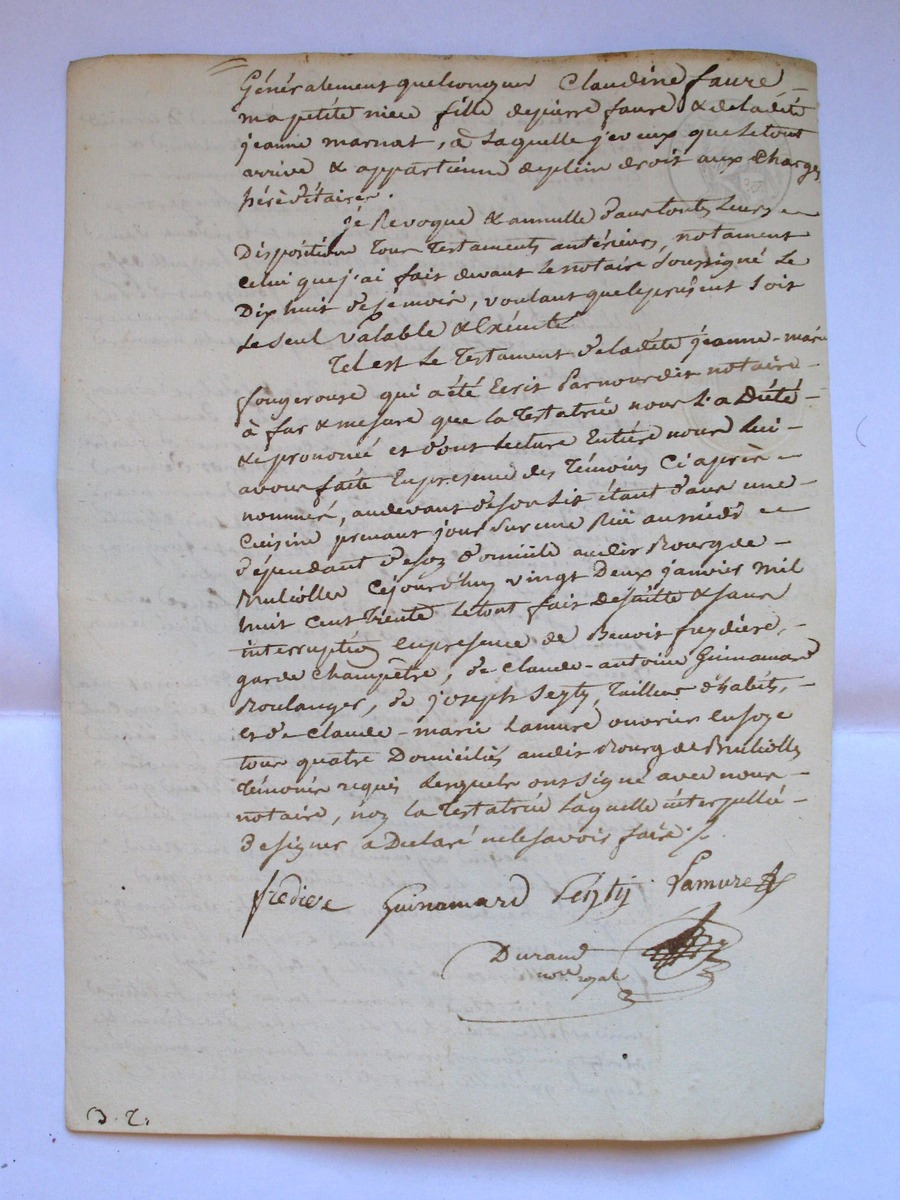 Généralement quelconques Claudine faure
ma petite niece fille de pierre faure & de ladité
jeanne marnat, à Laquelle je veux que le tout
arrive & appartienne de plein droit aux Charges
héréditaires.
je Revoque & annulle dans toutes leurs
Dispositions tous Testaments antérieurs, notament
Celui que j'ai fait devant le notaire soussigné Le
Dix huit de ce mois, voulant que le présent soit
Le seul valable & Exécuté
Tel est Le Testament de ladité jeanne-marie
fougerouse qui a été Ecrit Par nous dit notaire
à fur & mesure que la Testatrice nous l'a Dicté
& prononcé et dont Lecture Entière nous lui
avons faite En presence des Témoins Ci après
nommés, au devant de son Lit étant dans une
Cuisine prenant jour sur une Rüe au midi
dépendant de son domicile au dit Bourg de
Brulioles Cejourdhuy vingt Deux janvier mil
huit Cent Trente Le tout fait de suitte & sans
interruption En presence de Benoit freydiere,
garde Champêtre, de Claude-antoine Guinamard
Boulanger, de joseph Seyty, Tailleur d'habits,
et de Claude-marie Lamure ouvrier En soye
tous quatre Domiciliés au dit Bourg de Brulioles
Témoins requis Lesquels ont signé avec nous
notaire, non la Testatrice Laquelle interpellée
De signer a Déclaré ne le savoir faire ./.
frediere Guinamard Seÿtÿ Lamure
Durand
nore. royal